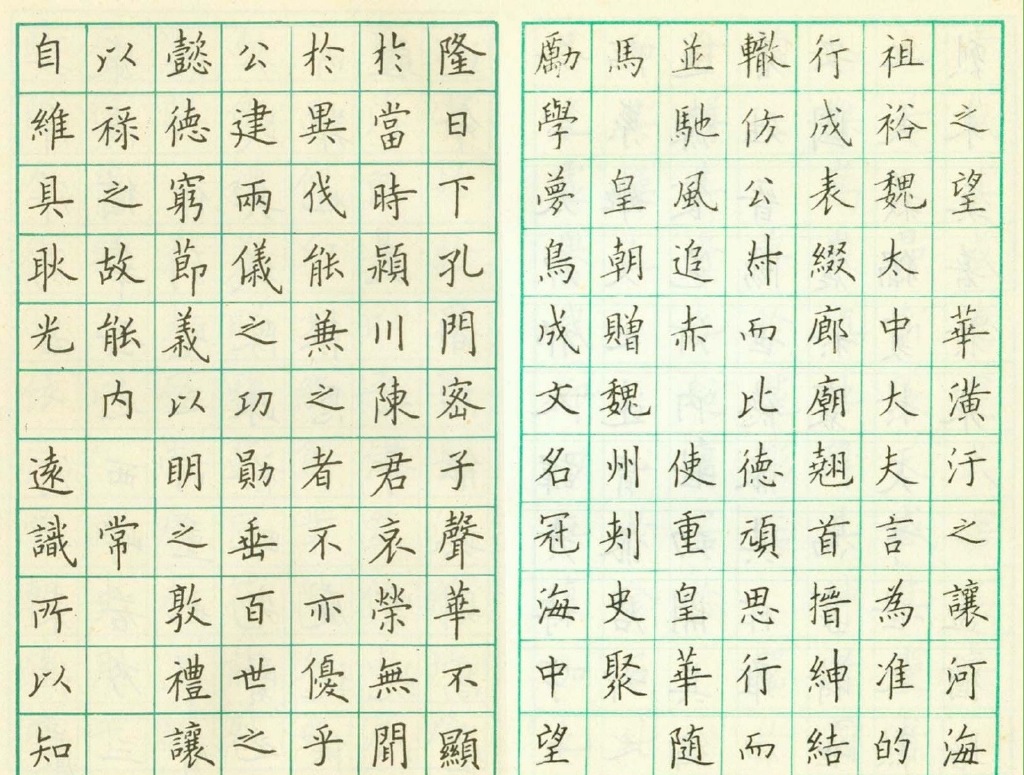 之望華潢汙之讓河海
祖裕魏太中大夫言為准的
行成表綴廊廟翹首搢紳結
轍仿公叔而比德頋思行而
並馳風追赤使重皇華隨
馬皇朝贈魏州刺史聚
勵學夢鳥成文名冠海中望
隆日下孔門密子聲華不顯
於當時潁川陳君哀榮無聞
於異伐能兼之者不亦優乎
公建兩儀之功勛垂百世之
懿德窮節義以明之敦禮讓
以祿之故能內常
自維具耿光遠識所以知